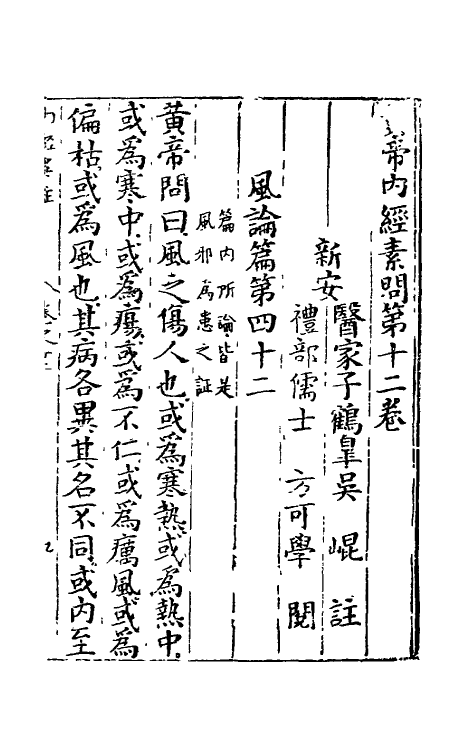 帝內經素問第十二卷
新安
醫家子鶴臯吳崐註
禮部儒士方可學閱
風論篇第四十二
篇內所論皆是
風邪為患之証
黃帝問曰風之傷人也或爲寒熱或爲熱中
或爲寒中或爲癘或爲不仁或爲癘風或爲
偏枯或爲風也其病各異其名不同或內至